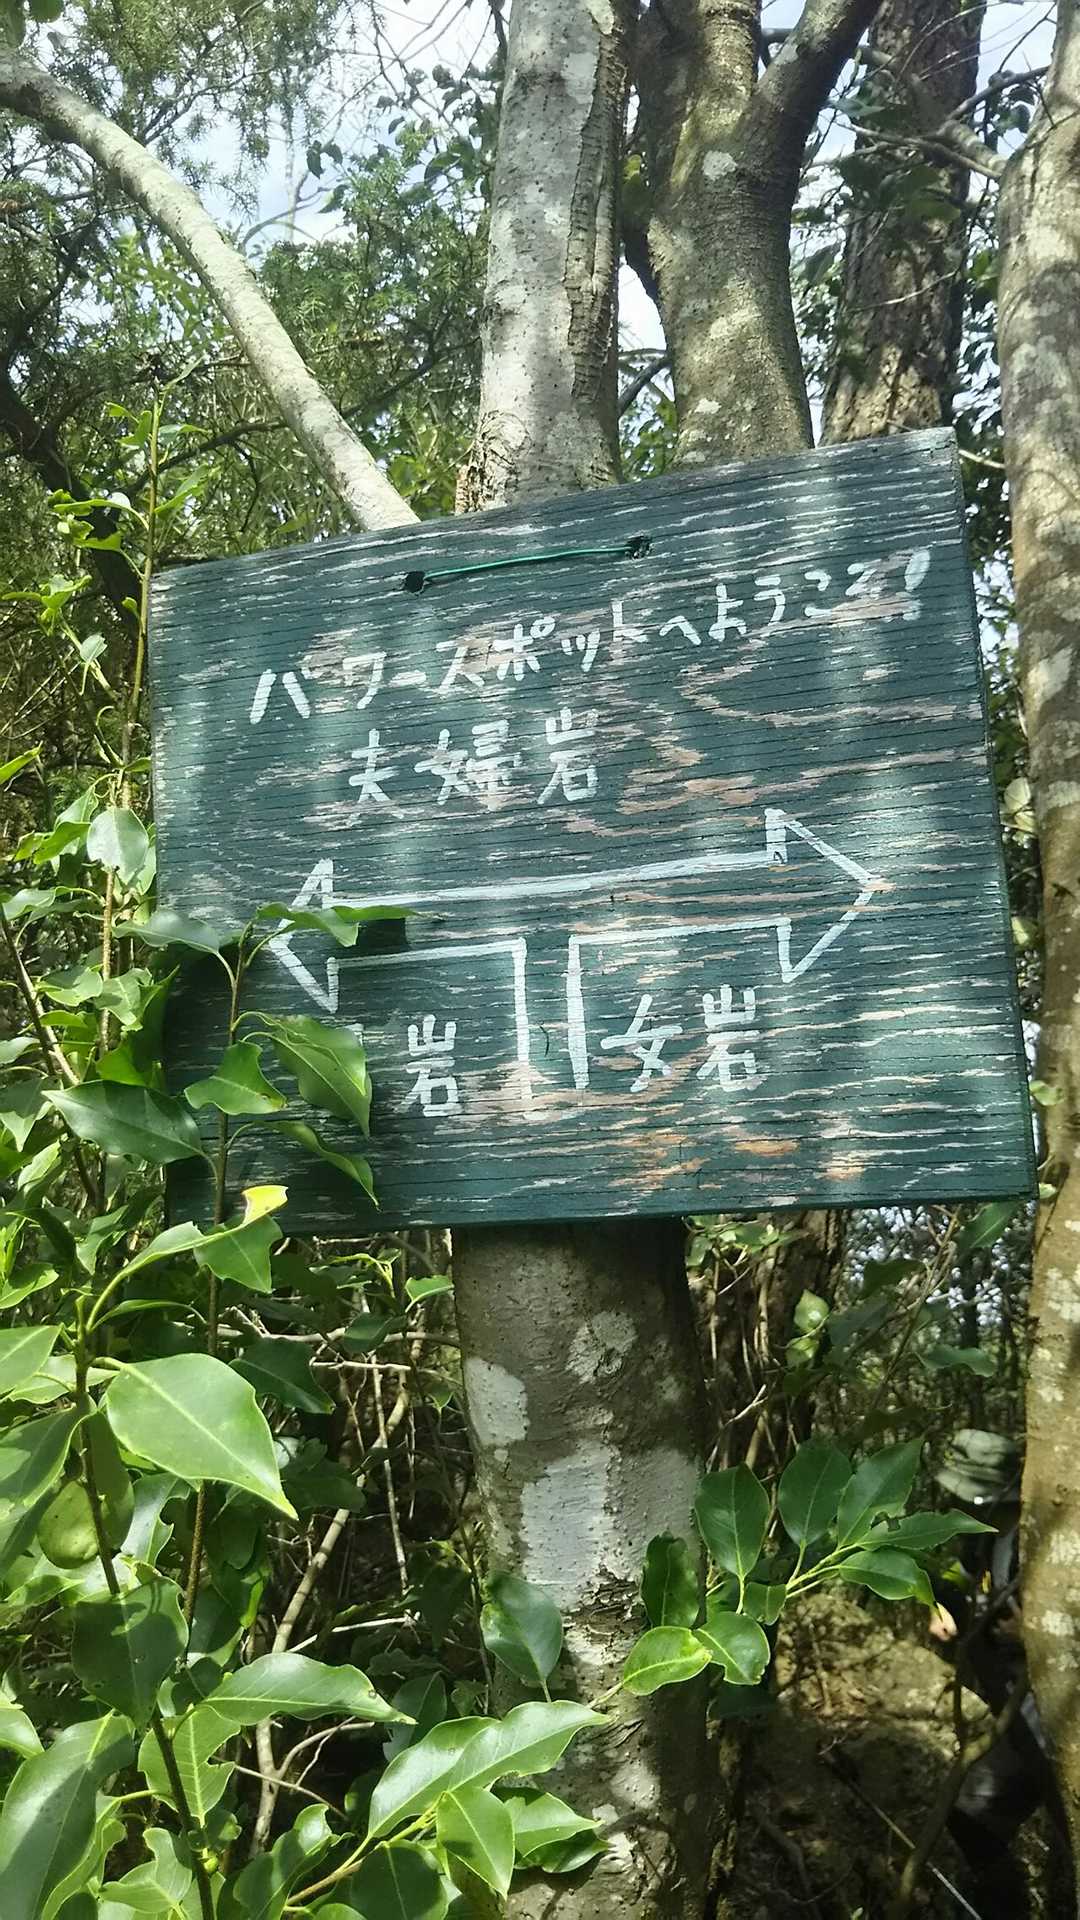 パワースポットへようこそ!
夫婦岩
岩 女岩